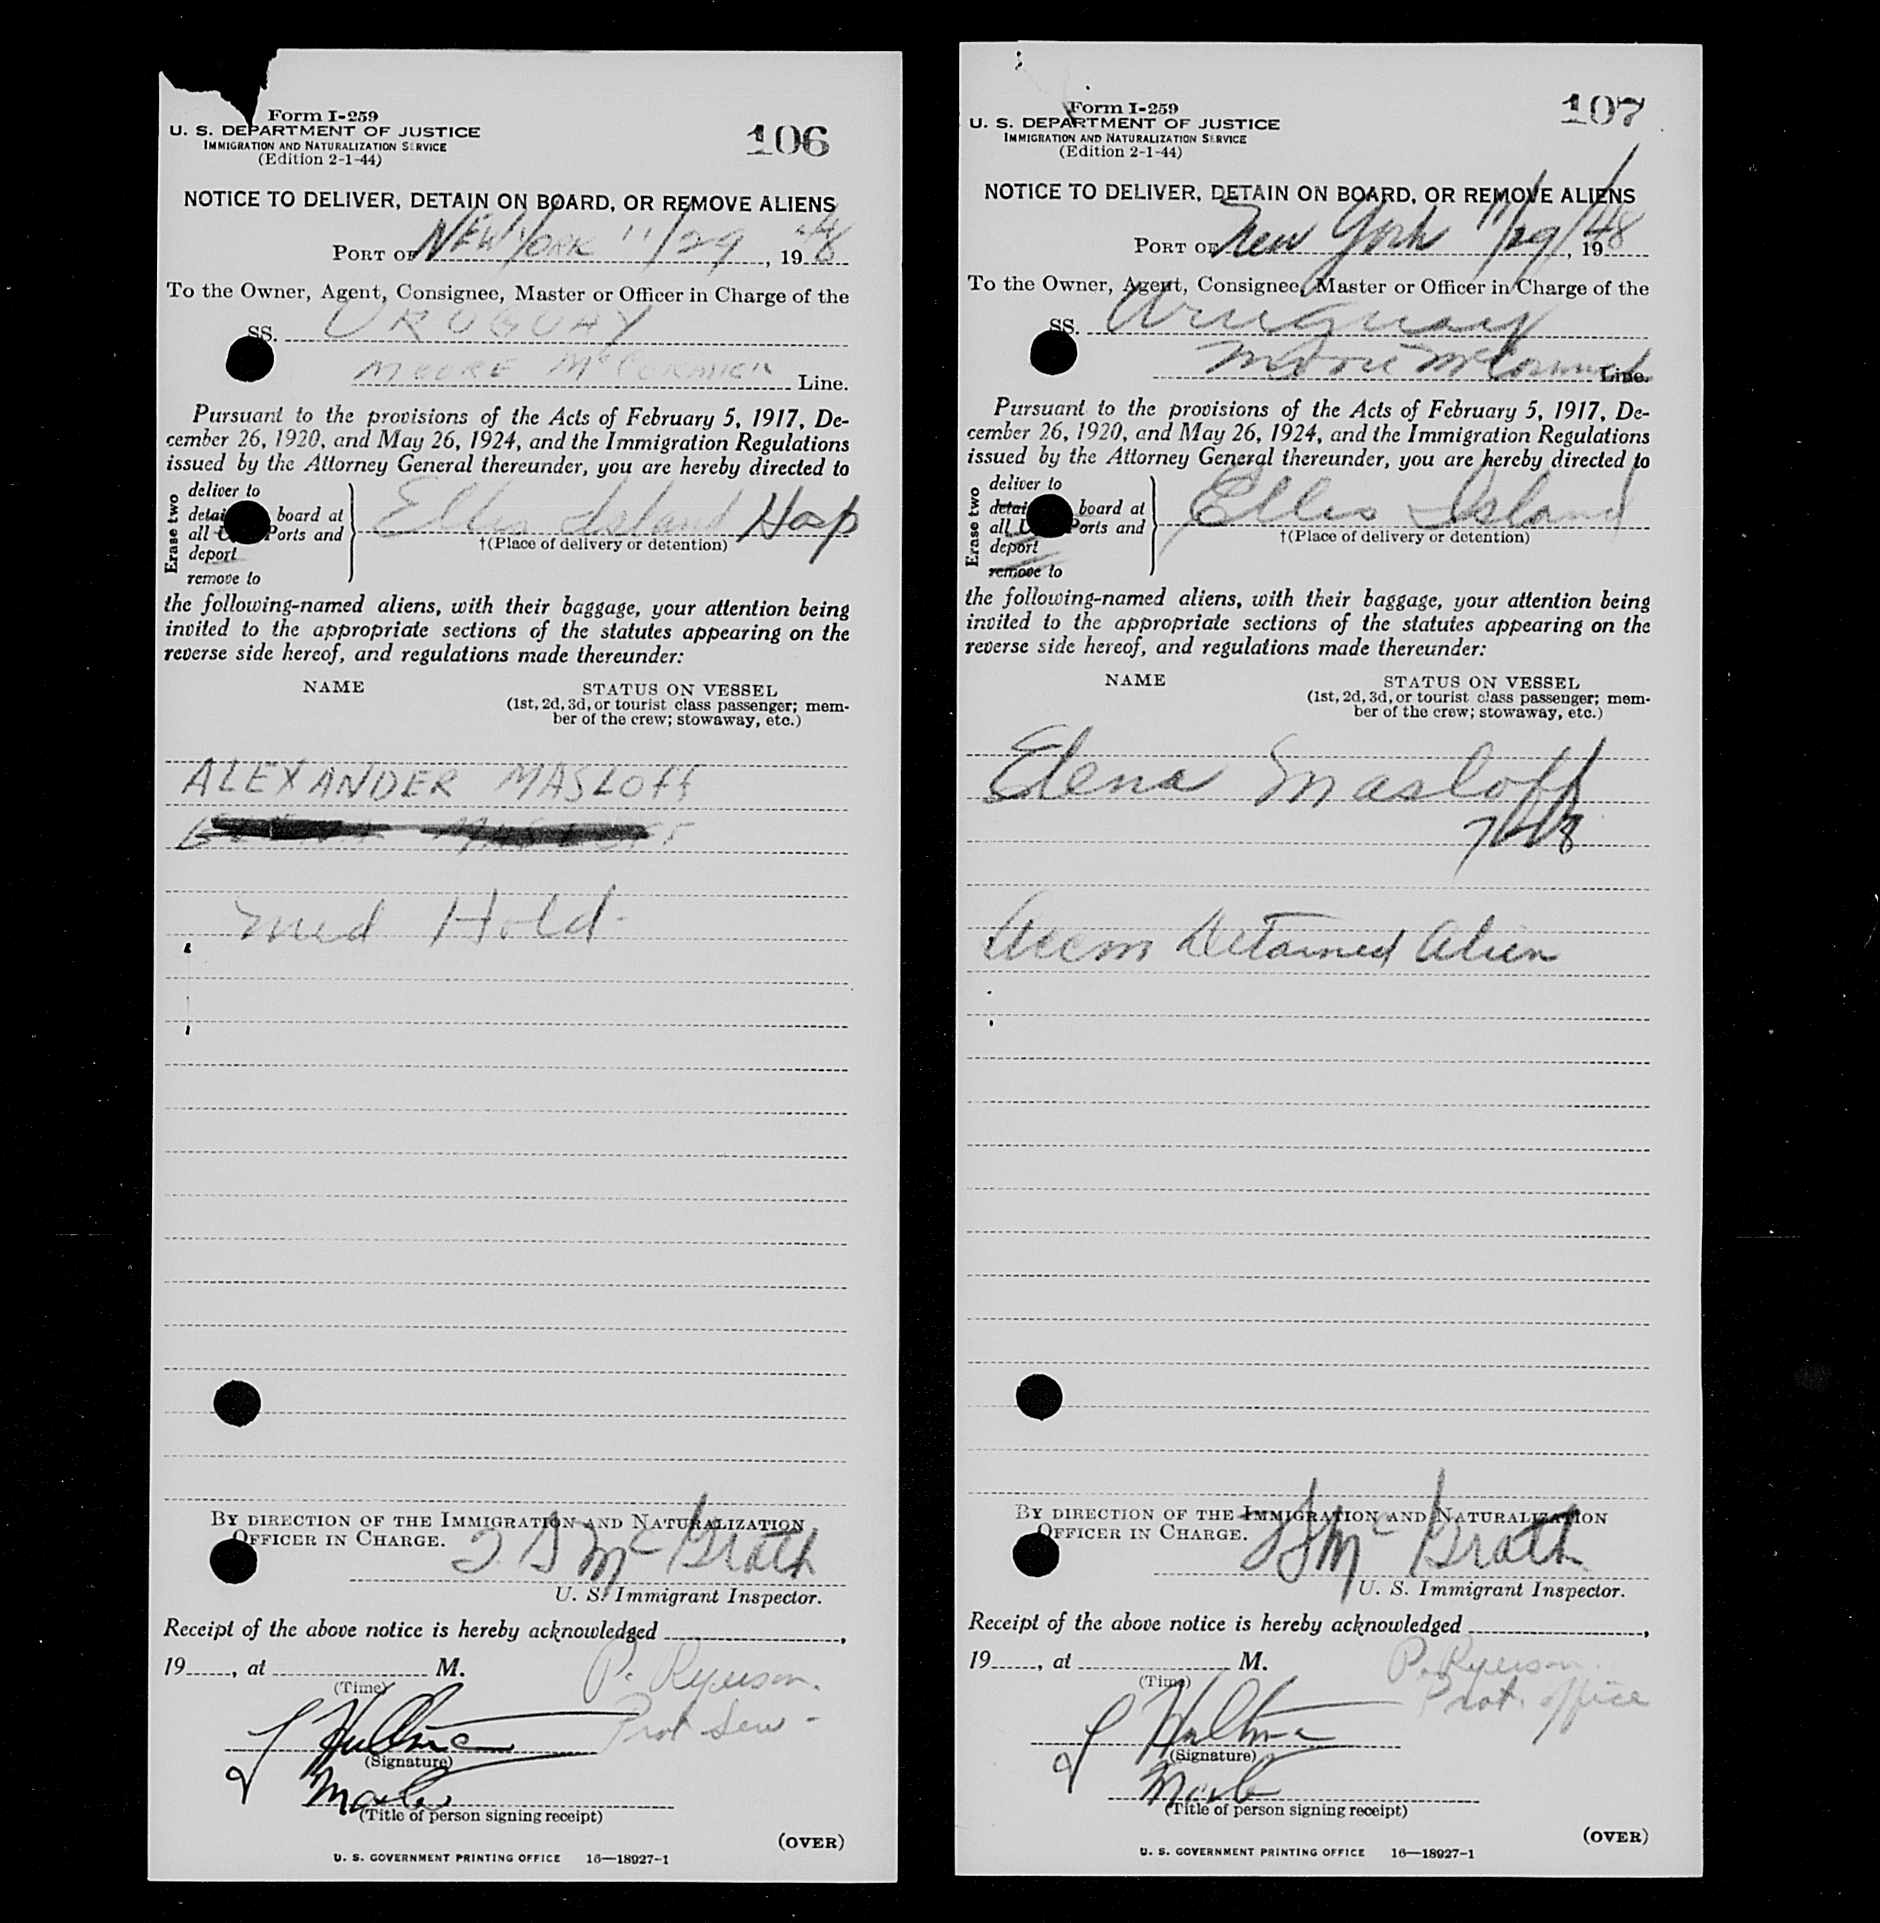 Form I-259
U. S. DEPARTMENT OF JUSTICE
IMMIGRATION AND NATURALIZATION SERVICE
(Edition 2-1-44)
106
NOTICE TO DELIVER, DETAIN ON BOARD, OR REMOVE ALIENS
PORT OF NEW YORK 11/29, 1948
To the Owner, Agent, Consignee, Master or Officer in Charge of the
SS. URUGUAY
MOORE McCORMICK Line.
Pursuant to the provisions of the Acts of February 5, 1917, De-
cember 26, 1920, and May 26, 1924, and the Immigration Regulations
issued by the Attorney General thereunder, you are hereby directed to
Erase two
deliver to
detai board at
all U Ports and
deport
remove to
Ellis Island Hosp
†(Place of delivery or detention)
the following-named aliens, with their baggage, your attention being
invited to the appropriate sections of the statutes appearing on the
reverse side hereof, and regulations made thereunder:
NAME STATUS ON VESSEL
(1st, 2d, 3d, or tourist class passenger; mem-
ber of the crew; stowaway, etc.)
ALEXANDER MASLOFF
MASLOFF
Med Hold
BY DIRECTION OF THE IMMIGRATION AND NATURALIZATION
OFFICER IN CHARGE.
McGrath
U. S. Immigrant Inspector.
Receipt of the above notice is hereby acknowledged ,
19 , at M.
(Time)
P. Ryerson.
(Signature)
(Title of person signing receipt)
(OVER)
U. S. GOVERNMENT PRINTING OFFICE 16—18927-1
Form I-259
U. S. DEPARTMENT OF JUSTICE
IMMIGRATION AND NATURALIZATION SERVICE
(Edition 2-1-44)
107
NOTICE TO DELIVER, DETAIN ON BOARD, OR REMOVE ALIENS
PORT OF New York 11/29/, 1948
To the Owner, Agent, Consignee, Master or Officer in Charge of the
SS. Uruguay
Moore McCormick Line.
Pursuant to the provisions of the Acts of February 5, 1917, De-
cember 26, 1920, and May 26, 1924, and the Immigration Regulations
issued by the Attorney General thereunder, you are hereby directed to
Erase two
deliver to
detai board at
all U Ports and
deport
remove to
Ellis Island
†(Place of delivery or detention)
the following-named aliens, with their baggage, your attention being
invited to the appropriate sections of the statutes appearing on the
reverse side hereof, and regulations made thereunder:
NAME STATUS ON VESSEL
(1st, 2d, 3d, or tourist class passenger; mem-
ber of the crew; stowaway, etc.)
Elena Masloff
Accom Detained Alien
BY DIRECTION OF THE IMMIGRATION AND NATURALIZATION
OFFICER IN CHARGE.
McGrath
U. S. Immigrant Inspector.
Receipt of the above notice is hereby acknowledged ,
19 , at M.
(Time)
P. Ryerson.
Prot. office
(Signature)
(Title of person signing receipt)
(OVER)
U. S. GOVERNMENT PRINTING OFFICE 16—18927-1